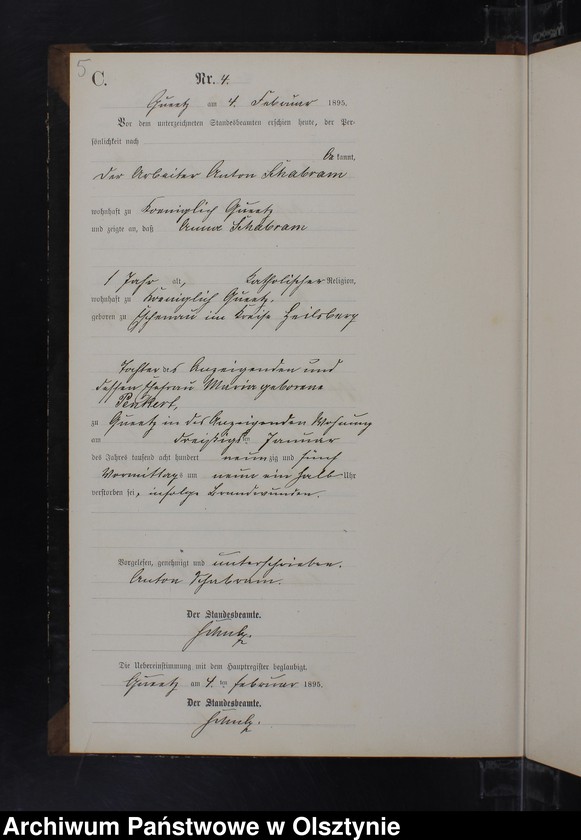 5
C.
Nr. 4.
Queetz am 4. Februar 1895.
Vor dem unterzeichneten Standesbeamten erschien heute, der Per-
sönlichkeit nach
be kannt,
der Arbeiter Anton Schabram
wohnhaft zu Koeniglich Queetz
und zeigte an, daß Anna Schabram
1 Jahr alt, katholischer Religion,
wohnhaft zu Koeniglich Queetz.
geboren zu Eschenau im Kreise Heilsberg
Tochter des Anzeigenden und
dessen Ehefrau Maria geborene
zu Queetz in des Anzeigenden Wohnung
am dreißigsten Januar
des Jahres tausend acht hundert neun zig und fünf
Vormittags um neun ein halb Uhr
verstorben sei, infolge Brandwunden.
Vorgelesen, genehmigt und unterschrieben.
Anton Schabram.
Der Standesbeamte.
Schulz.
Die Uebereinstimmung mit dem Hauptregister beglaubigt.
Queetz am 4. ten Februar 1895.
Der Standesbeamte.
Schulz.
Archiwum Państwowe w Olsztynie